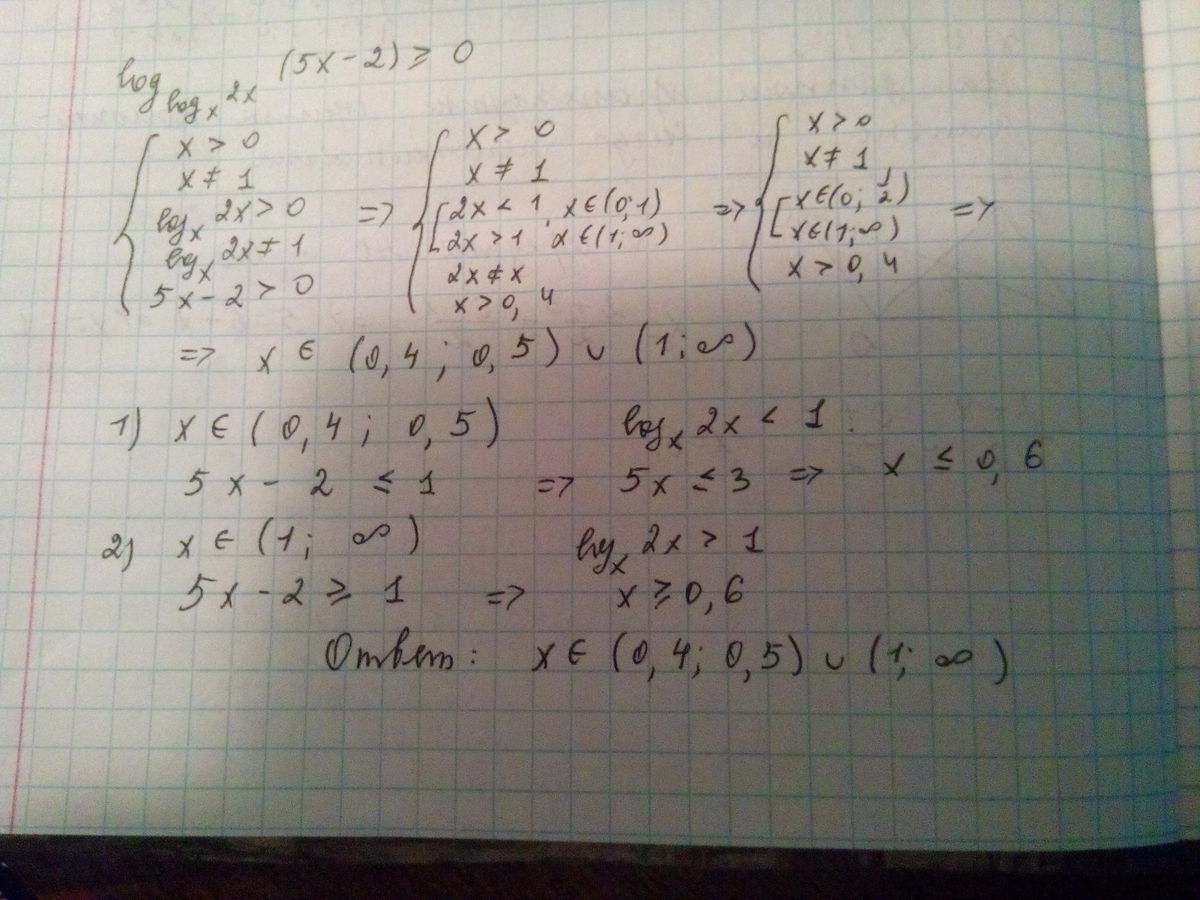 log_{log_x 2x} (5x-2) ≥ 0
{ x > 0
x ≠ 1
log_x 2x > 0
log_x 2x ≠ 1
5x-2 > 0
=>
{ x > 0
x ≠ 1
[ 2x < 1, x ∈ (0; 1)
2x > 1 x ∈ (1; ∞)
2x ≠ x
x > 0,4
=>
{ x > 0
x ≠ 1
[ x ∈ (0; 1/2)
x ∈ (1; ∞)
x > 0,4
=>
=> x ∈ (0,4; 0,5) ∪ (1; ∞)
1) x ∈ (0,4; 0,5) log_x 2x < 1.
5x - 2 ≤ 1 => 5x ≤ 3 => x ≤ 0,6
2) x ∈ (1; ∞) log_x 2x > 1
5x - 2 ≥ 1 => x ≥ 0,6
Ответ: x ∈ (0,4; 0,5) ∪ (1; ∞)